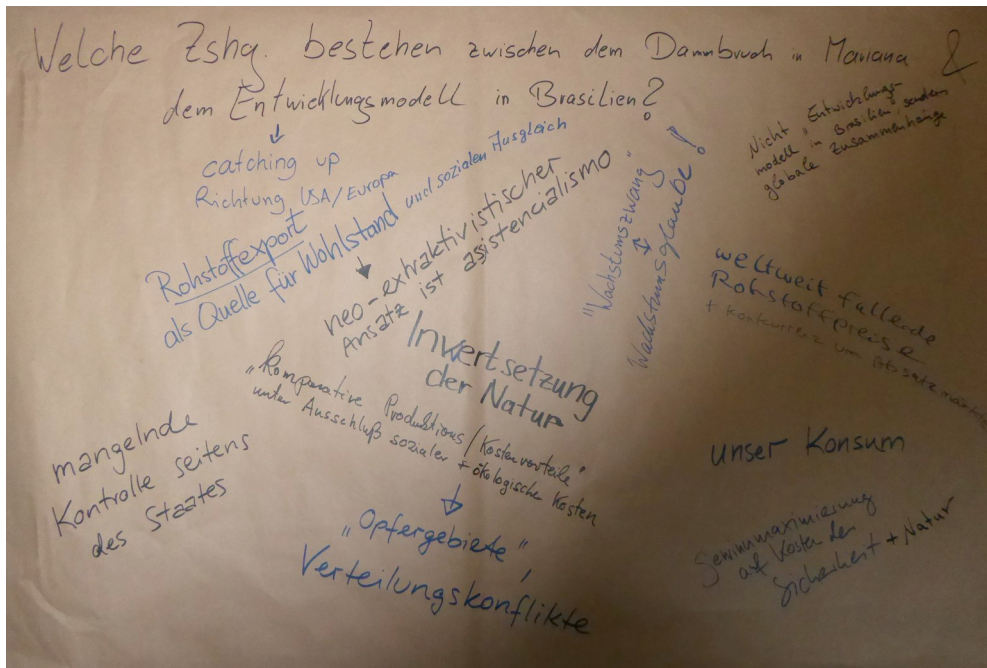 Welche Zshg. bestehen zwischen dem Dammbruch in Mariana &
dem Entwicklungsmodell in Brasilien?
↓
catching up
Richtung USA/Europa
Rohstoffexport
als Quelle für Wohlstand und sozialen Ausgleich
neo-extraktivistischer
Ansatz ist assistencialismo
"Wachstumszwang"
↕
Wachstumsglaube!
Nicht "Entwicklungs-
modell in Brasilien", sondern
globale Zusammenhänge
weltweit fallende
Rohstoffpreise
+ Konkurrenz um Absatzmärkte
Invertsetzung
der Natur
"Komparative Produktions/Kostenvorteile"
unter Ausschluß sozialer + ökologische Kosten
↓
"Opfergebiete",
Verteilungskonflikte
mangelnde
Kontrolle seitens
des Staates
unser Konsum
Gewinnmaximierung
auf Kosten der
Sicherheit + Natur